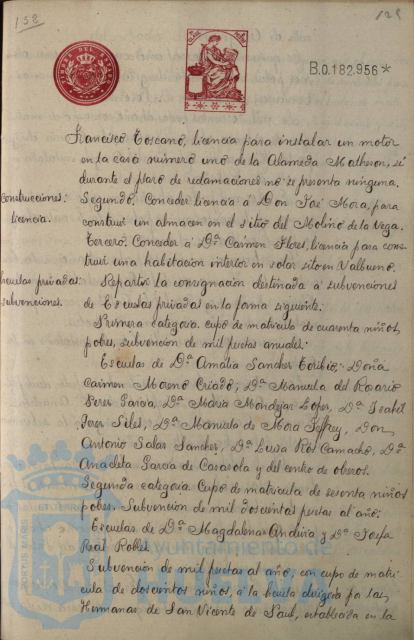 158
129
TIMBRE DEL
B.0.182.956*
Francisco Toscano, licencia para instalar un motor
en la casa numero uno de la Alameda Matheson, si
durante el plazo de reclamaciones no se presenta ninguna.
Construcciones:
licencia.
Segundo. Conceder licencia á Don José Mora, para
construir un almacen en el sitio del Molino de la Vega.
Tercero. Conceder á Dª Carmen Flores, licencia para cons-
truir una habitación interior en solar sito en Valbueno.
Escuelas privadas:
subvenciones.
Repartir la consignación destinada á subvenciones
de Escuelas privadas en la forma siguiente:
Primera categoria. cupo de matricula de cuarenta niños
pobres, subvención de mil pesetas anuales:
Escuelas de Dª Amalia Sanchez Toribio; Doña
Carmen Moreno Criado; Dª Manuela del Rosario
Perez Garcia, Dª Maria Mondejar Lopez, Dª Isabel
Perez Siles, Dª Manuela de Mora Jeffrey, Don
Antonio Salas Sanchez, Dª Luisa Ros Camacho, Dª
Anacleta Garcia de Casasola y del centro de obreros.
Segunda categoria. Cupo de matricula de sesenta niños
pobres. Subvención de mil doscientas pesetas al año:
Escuelas de Dª Magdalena y Dª Josefa
Real Robles.
Subvención de mil pesetas al año, con cupo de matri-
cula de doscientos niños, á la Escuela dirigida por las
Hermanas de San Vicente de Paul, establecida en la
PORTUS MARIS
Ayuntamiento de
Huelva